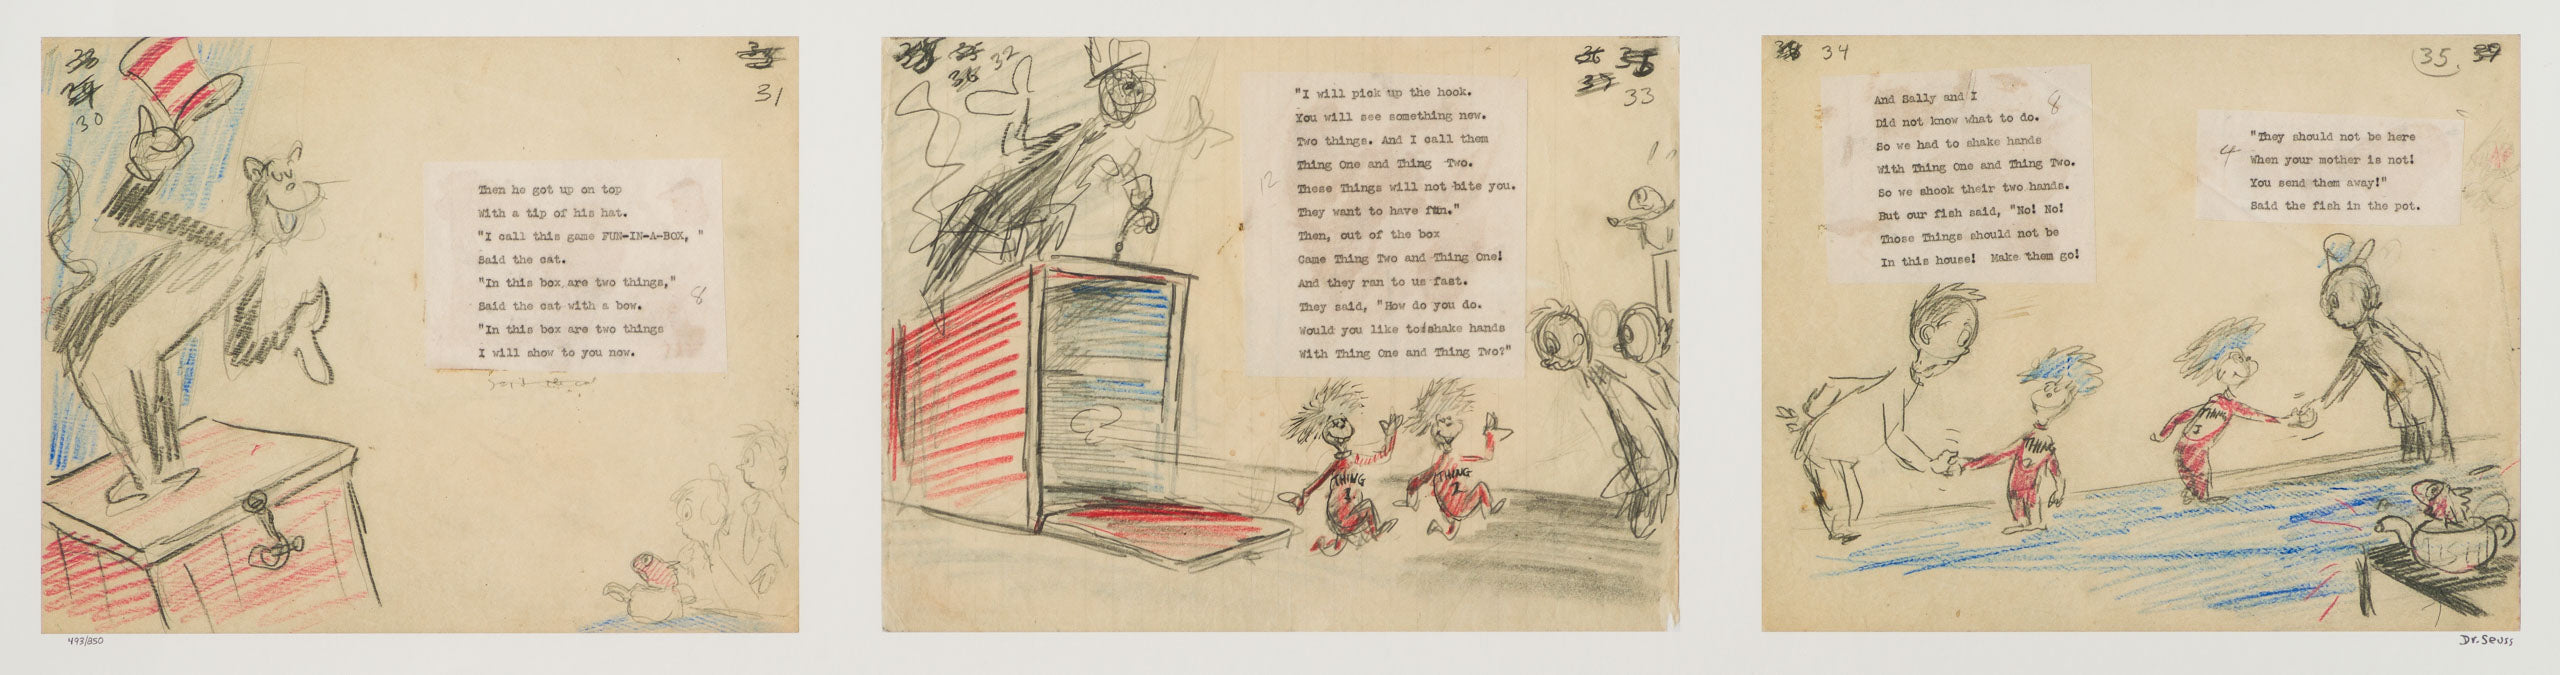 30
31
Then he got up on top
With a tip of his hat.
"I call this game FUN-IN-A-BOX, "
Said the cat.
"In this box are two things,"
Said the cat with a bow.
"In this box are two things
I will show to you now.
8
32
33
"I will pick up the hook.
You will see something new.
Two things. And I call them
Thing One and Thing Two.
These Things will not bite you.
They want to have fun."
Then, out of the box
Came Thing Two and Thing One!
And they ran to us fast.
They said, "How do you do.
Would you like to shake hands
With Thing One and Thing Two?"
12
THING
1
THING
2
34
And Sally and I
Did not know what to do.
So we had to shake hands
With Thing One and Thing Two.
So we shook their two hands.
But our fish said, "No! No!
Those Things should not be
In this house! Make them go!
8
35.
"They should not be here
When your mother is not!
You send them away!"
Said the fish in the pot.
4
THING
2
THING
1
493/850
Dr. Seuss